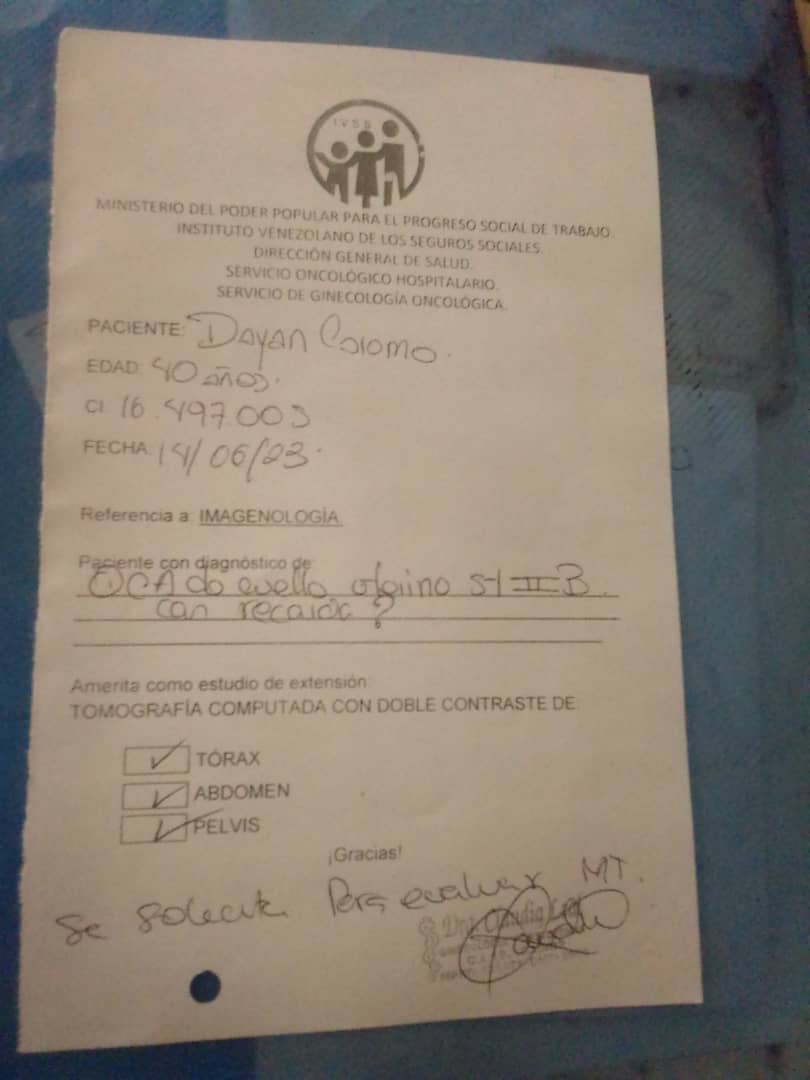 IVSS
MINISTERIO DEL PODER POPULAR PARA EL PROGRESO SOCIAL DE TRABAJO.
INSTITUTO VENEZOLANO DE LOS SEGUROS SOCIALES.
DIRECCIÓN GENERAL DE SALUD.
SERVICIO ONCOLÓGICO HOSPITALARIO.
SERVICIO DE GINECOLOGÍA ONCOLÓGICA.
PACIENTE: Dayan
EDAD: 40 años.
CI. 16.497.003
FECHA: 14/06/23.
Referencia a: IMAGENOLOGÍA
Paciente con diagnóstico de:
CA de cuello uterino St II B.
con recaida?
Amerita como estudio de extensión:
TOMOGRAFÍA COMPUTADA CON DOBLE CONTRASTE DE:
TÓRAX
ABDOMEN
PELVIS
¡Gracias!
Se solicita Para evaluar MT.
Dra. Claudia